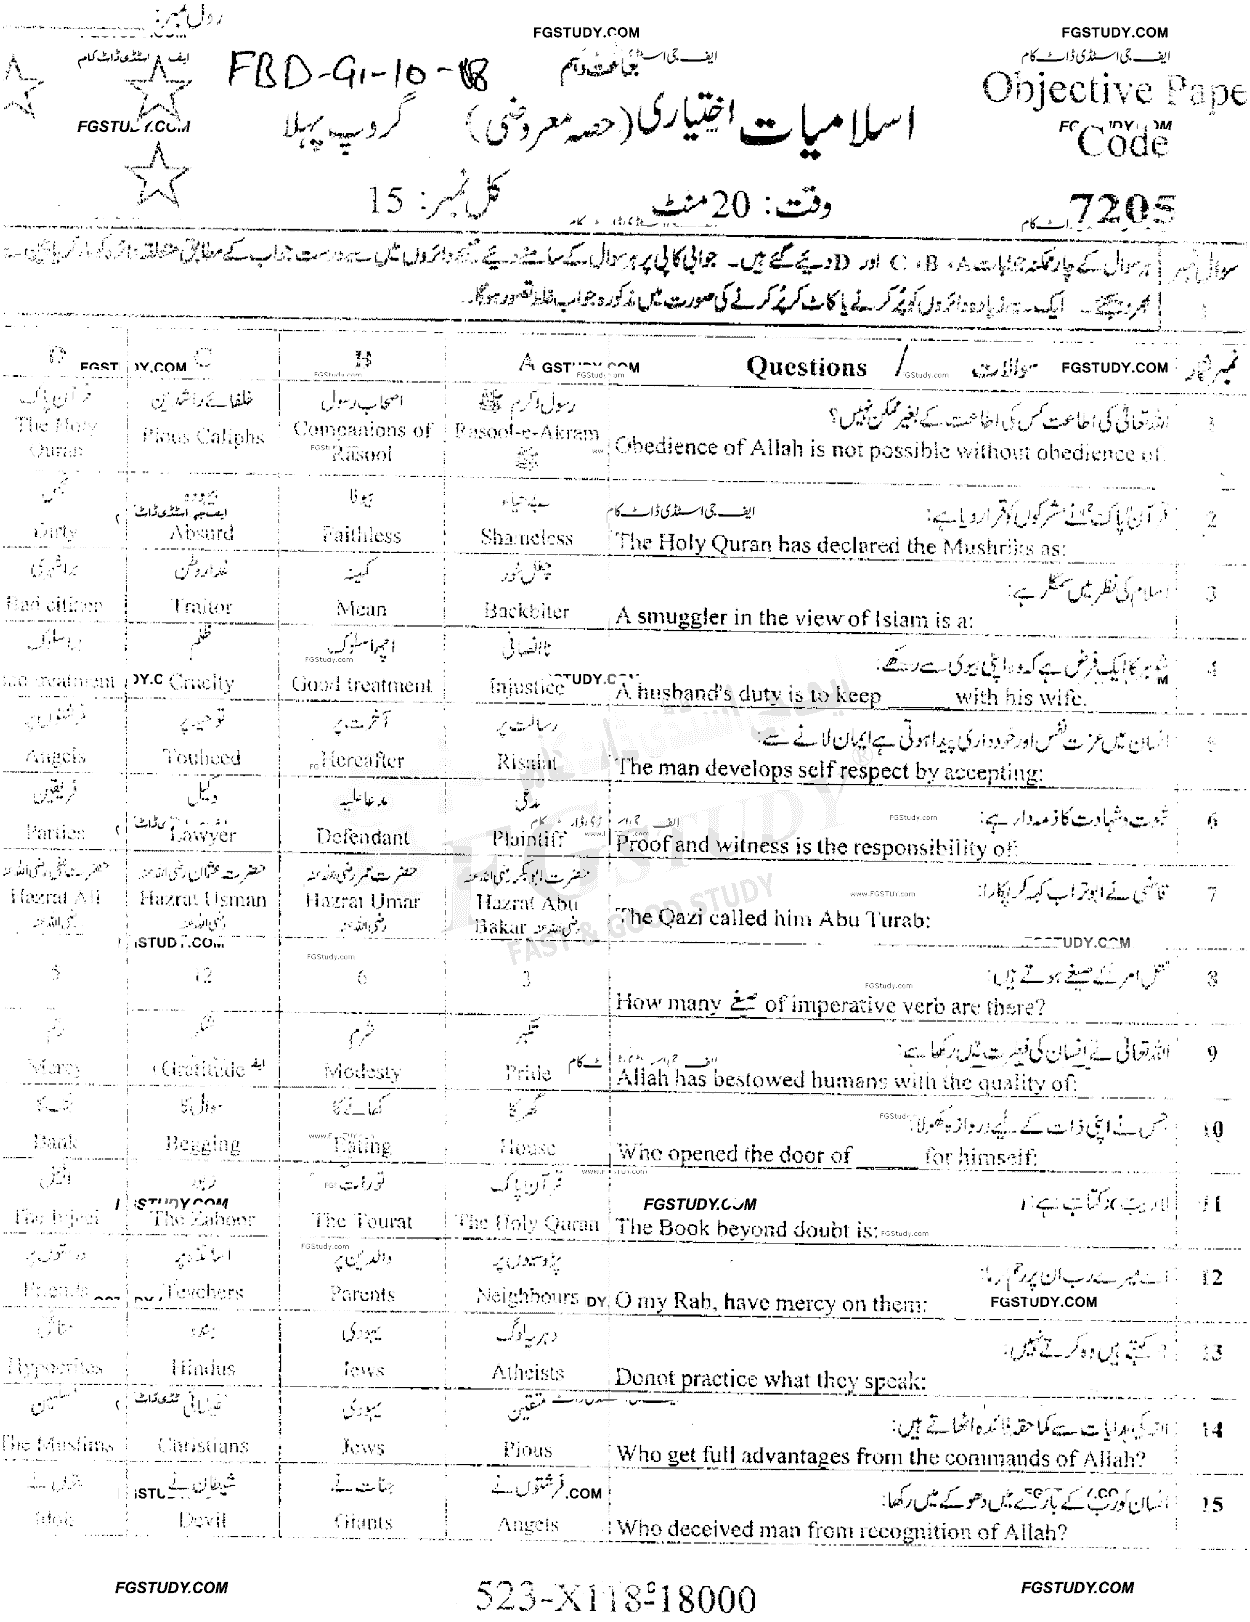 رول نمبر:
FGSTUDY.COM
FGSTUDY.COM
ایف جی اسٹڈی ڈاٹ کام
FBD-G1-10-18
جماعت دہم
ایف جی اسٹڈی ڈاٹ کام
Objective Pape
FGSTUDY.COM
اسلامیات اختیاری (حصہ معروضی) گروپ پہلا
Code
وقت: 20 منٹ
کل نمبر: 15
7205
سوال نمبر 1
ہر سوال کے چار ممکنہ جوابات A، B، C اور D دیئے گئے ہیں۔ جوابی کاپی پر ہر سوال کے سامنے دیئے گئے دائروں میں سے درست جواب کے مطابق متعلقہ دائرہ کو
بھر دیجئے۔ ایک سے زیادہ دائروں کو پُر کرنے یا کاٹ کر پُر کرنے کی صورت میں مذکورہ جواب غلط تصور ہوگا۔
نمبر شمار
سوالات / Questions
A
B
C
D
1
اللہ تعالیٰ کی اطاعت کس کی اطاعت کے بغیر ممکن نہیں؟
رسول اکرم ﷺ
اصحاب رسول
خلفائے راشدین
قرآن پاک
Obedience of Allah is not possible without obedience of:
Rasool-e-Akram ﷺ
Companions of Rasool
Pious Caliphs
The Holy Quran
2
قرآن پاک نے مشرکوں کو قرار دیا ہے:
بے حیاء
بیوفا
بیہودہ
نجس
The Holy Quran has declared the Mushriks as:
Shameless
Faithless
Absurd
Dirty
3
اسلام کی نظر میں سمگلر ہے:
چغل خور
کمینہ
غدار وطن
برا شہری
A smuggler in the view of Islam is a:
Backbiter
Mean
Traitor
Bad citizen
4
شوہر کا ایک فرض ہے کہ وہ اپنی بیوی سے رکھے:
ناانصافی
اچھا سلوک
ظلم
بد سلوکی
A husband's duty is to keep ______ with his wife.
Injustice
Good treatment
Cruelty
Bad treatment
5
انسان میں عزت نفس اور خودداری پیدا ہوتی ہے ایمان لانے سے:
رسالت پر
آخرت پر
توحید پر
فرشتوں پر
The man develops self respect by accepting:
Risalat
Hereafter
Touheed
Angels
6
ثبوت و شہادت کا ذمہ دار ہے:
مدعی
مدعا علیہ
وکیل
فریقین
Proof and witness is the responsibility of:
Plaintiff
Defendant
Lawyer
Parties
7
قاضی نے ابو تراب کہہ کر پکارا:
حضرت ابوبکر رضی اللہ عنہ
حضرت عمر رضی اللہ عنہ
حضرت عثمان رضی اللہ عنہ
حضرت علی رضی اللہ عنہ
The Qazi called him Abu Turab:
Hazrat Abu Bakar رضی اللہ عنہ
Hazrat Umar رضی اللہ عنہ
Hazrat Usman رضی اللہ عنہ
Hazrat Ali رضی اللہ عنہ
8
فعل امر کے صیغے ہوتے ہیں:
How many صیغے of imperative verb are there?
3
6
12
9
اللہ تعالیٰ نے انسان کی فطرت میں رکھا ہے:
تکبر
شرم
شکر
رحم
Allah has bestowed humans with the quality of:
Pride
Modesty
Gratitude
Mercy
10
جس نے اپنی ذات کے لیے دروازہ کھولا:
گھر کا
کھانے کا
سوال کا
Who opened the door of ______ for himself:
House
Eating
Begging
Bank
11
لاریب کتاب ہے:
قرآن پاک
تورات
زبور
انجیل
The Book beyond doubt is:
The Holy Quran
The Tourat
The Zaboor
The Injeel
12
اے میرے رب ان پر رحم فرما:
پڑوسیوں پر
والدین پر
اساتذہ پر
دوستوں پر
O my Rab, have mercy on them:
Neighbours
Parents
Teachers
Friends
13
جو کہتے ہیں وہ کرتے نہیں:
دہریہ لوگ
یہودی
ہندو
منافق
Donot practice what they speak:
Atheists
Jews
Hindus
Hypocrites
14
اللہ کی ہدایات سے کما حقہ فائدہ اٹھاتے ہیں:
متقین
یہودی
عیسائی
مسلمین
Who get full advantages from the commands of Allah?
Pious
Jews
Christians
The Muslims
15
انسان کو رب کے بارے میں دھوکے میں رکھا:
فرشتوں نے
جنات نے
شیطان نے
بتوں نے
Who deceived man from recognition of Allah?
Angels
Giants
Devil
Idols
FGSTUDY
FAST & GOOD STUDY
FGSTUDY.COM
523-X118-18000
FGSTUDY.COM